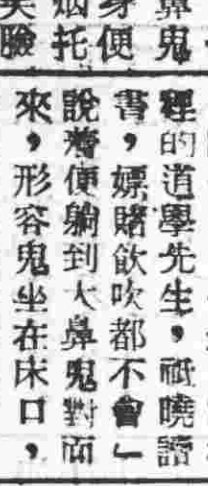 鼻鬼
身便
烟托
笑臉
裡的道學先生，祇曉讀
書，嫖賭飲吹都不會」
說着便躺到大鼻鬼對面
來，形容鬼坐在床口，